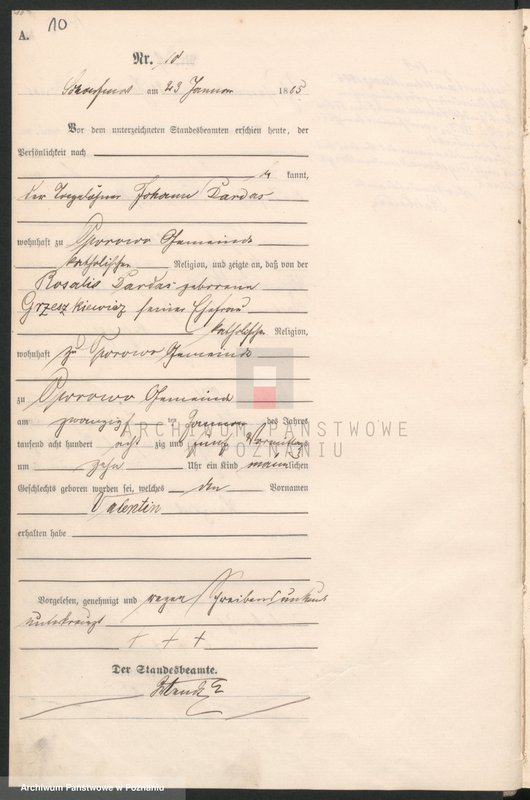 10
A.
Nr. 10
am 23 Januar 1885
Vor dem unterzeichneten Standesbeamten erschien heute, der
Persönlichkeit nach
kannt,
der Tagelöhner Johann Dardas
wohnhaft zu Gemeinde
katholischer Religion, und zeigte an, daß von der
Rosalie Dardas geborene
Grzeszkiewicz seiner Ehefrau
katholischer Religion,
wohnhaft zu Gemeinde
zu Gemeinde
am zwanzigsten Januar des Jahres
tausend acht hundert achtzig und fünf Vormittags
um zehn Uhr ein Kind männlichen
Geschlechts geboren worden sei, welches den Vornamen
Valentin
erhalten habe
Vorgelesen, genehmigt und wegen Schreibensunkunde
unterkreuzt
+ + +
Der Standesbeamte.
ARCHIWUM PAŃSTWOWE
W POZNANIU
Archiwum Państwowe w Poznaniu